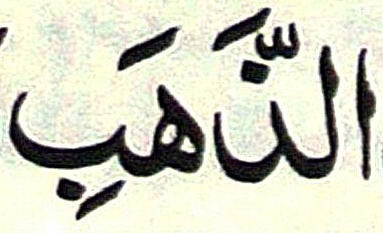 الذَّهَبِ